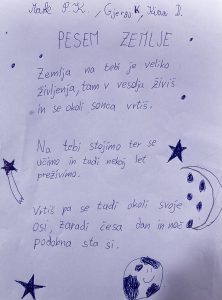 P.K., Gjergji K., D.
PESEM ZEMLJE
Zemlja na tebi je veliko
življenja, tam v vesolju živiš
in se okoli sonca vrtiš.
Na tebi stojimo ter se
učimo in tadi nekaj let
preživimo.
Vrtiš pa se tudi okoli svoje
osi, zaradi česa dan in noč
podobna sta si.